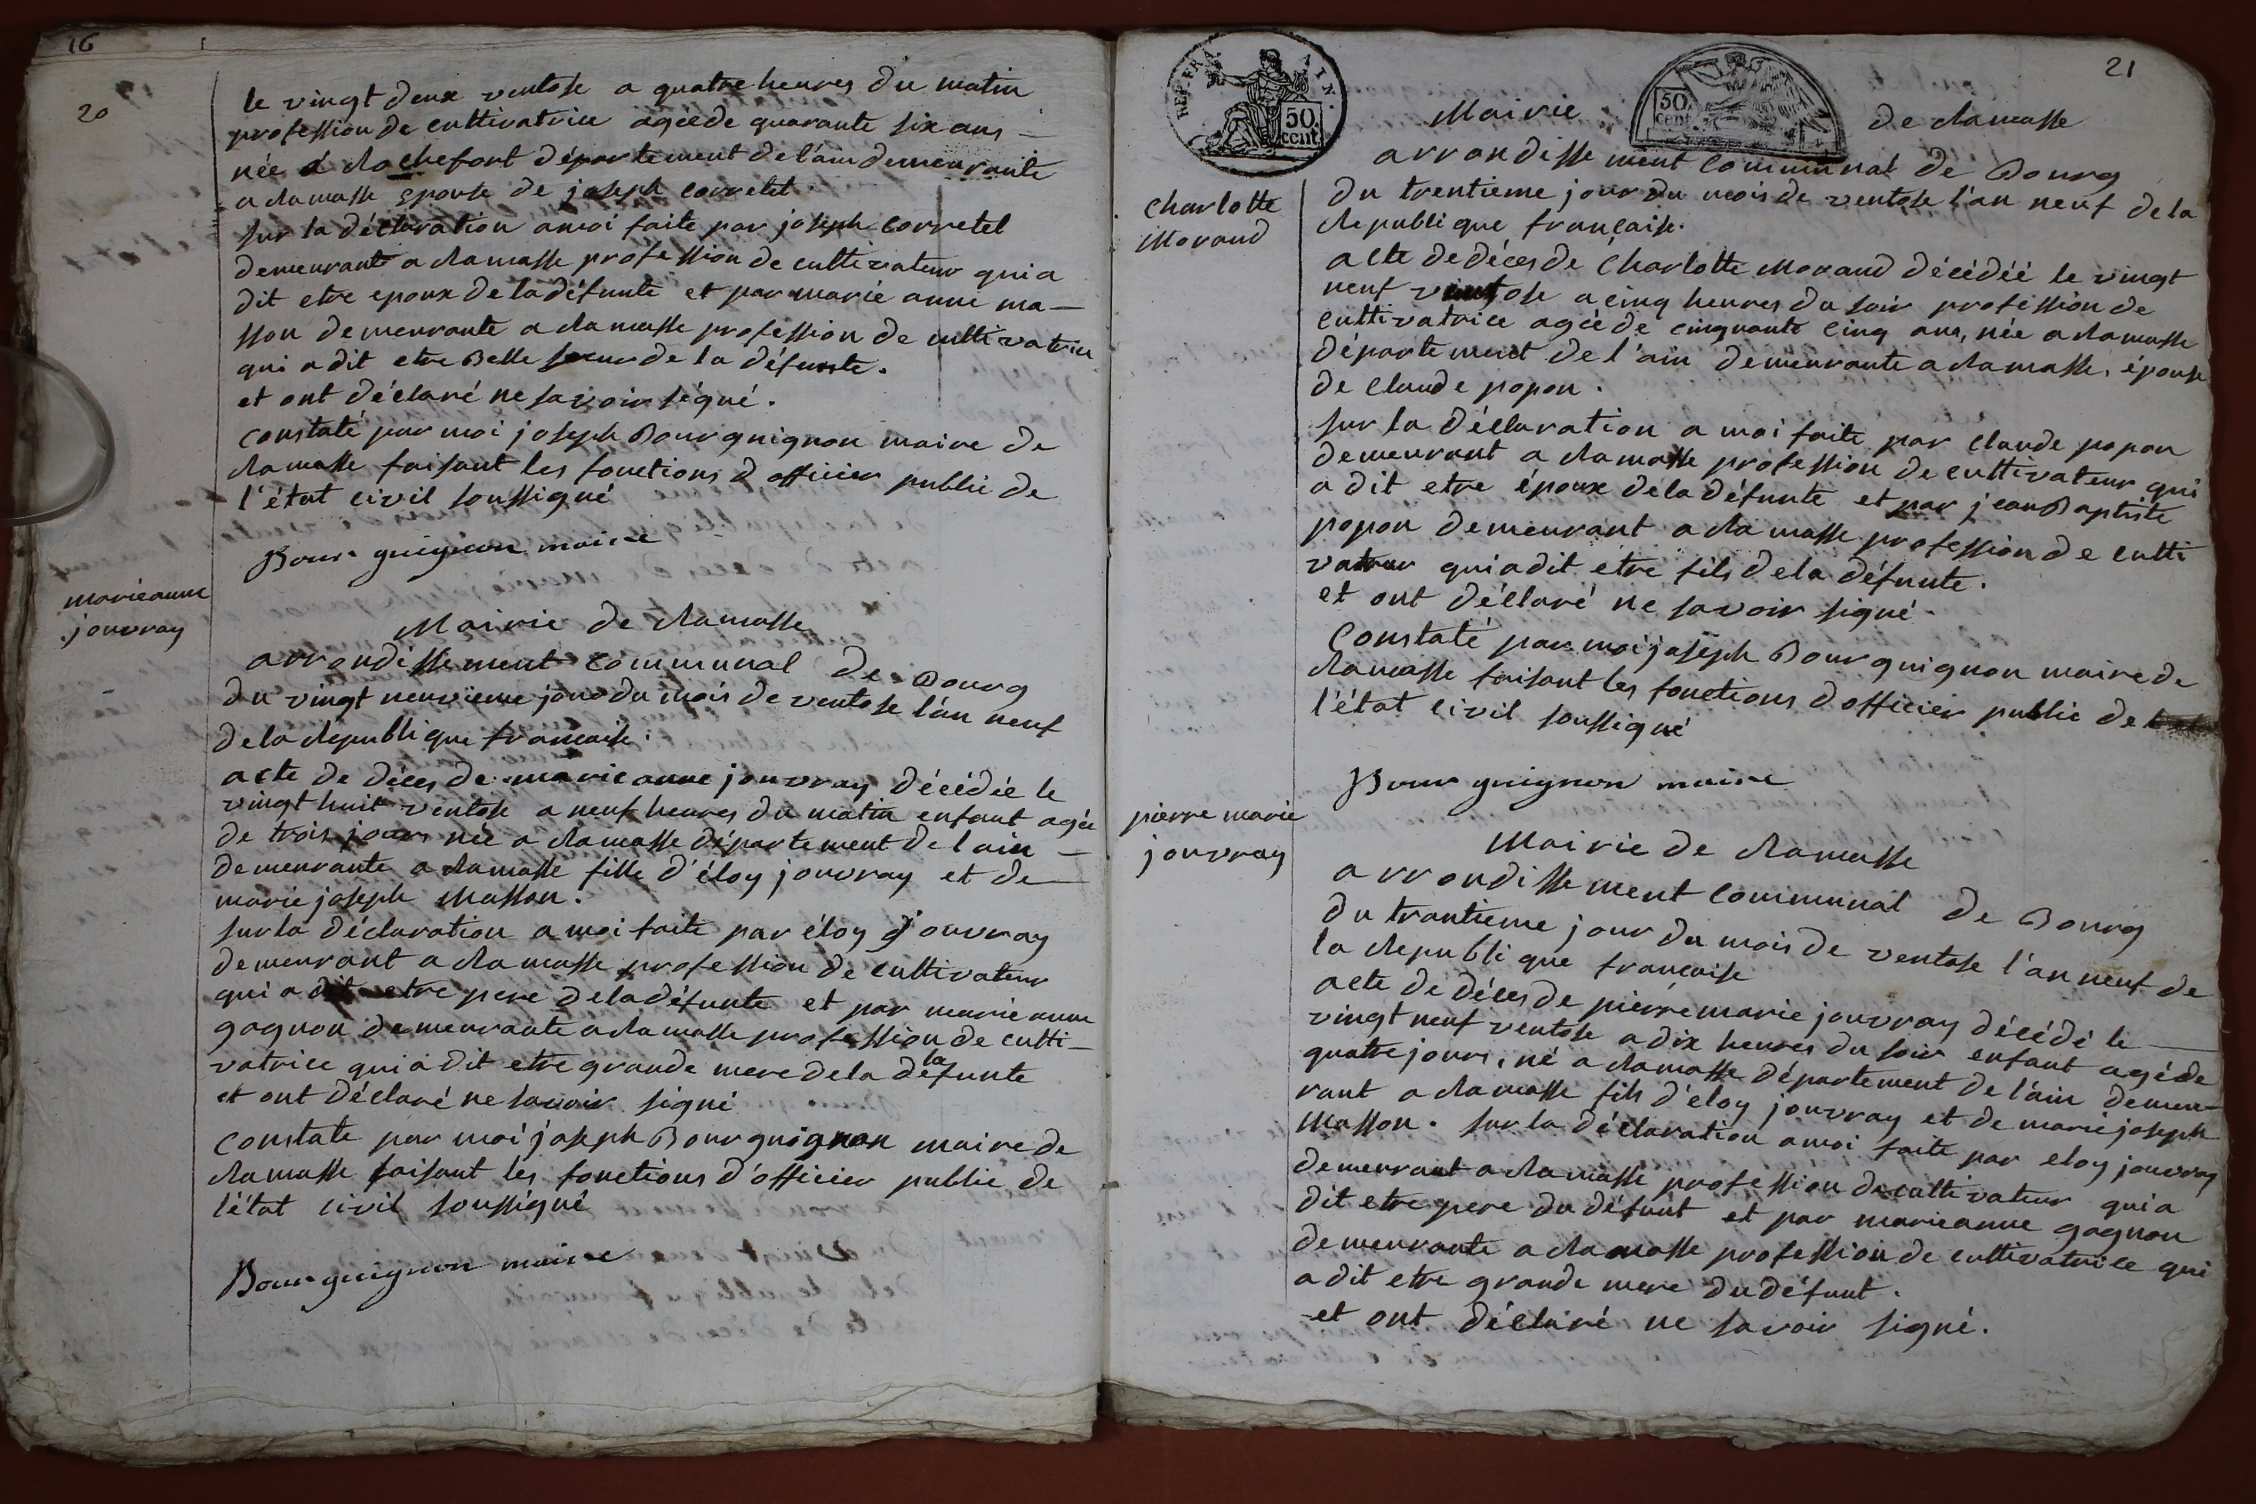 16
20
le vingt deux ventose a quatre heures du matin
profession de cultivatrice agéede quarante six ans —
née a Rochefort département de l'ain demeurante
a Ramasse Epouse de joseph corretel
sur la déclaration amoi faite par joseph Corretel
demeurant a Ramasse profession de cultivateur quia
dit etre epoux de ladéfunte et par marie anne ma-
sson demeurante a Ramasse profession de cultivatrice
qui adit etre Belle soeur de la défunte.
et ont déclaré ne savoir signé.
constaté par moi joseph Bourguignon maire de
Ramasse faisant les fonctions d officier public de
l'état civil soussigné
Bourguignon maire
marieanne
jouvray
Mairie de Ramasse
arrondissement communal de Bourg
du vingt neuvieme jour du mois de ventose l'an neuf
dela Republique francaise.
acte de déces de marie anne jouvray décédée le
vingt huit ventose a neuf heures du matin enfant agée
de trois jours née a Ramasse département de l ain —
demeurante a Ramasse fille d'éloy jouvray et de —
marie joseph Masson.
sur la déclaration amoi faite par éloy jouvray
demeurant a Ramasse profession de cultivateur
qui a dit etre pere deladéfunte et par marie anne
gagnon demeurante a Ramasse profession de culti-
vatrice qui a dit etre grande mere dela défunte
et ont déclaré ne savoir signé
constaté par moi joseph Bourguignon maire de
Ramasse faisant les fonctions d'officier public de
l'état civil soussigné
Bourguignon maire
21
REP. FRA. AIN.
50 cent
50 cent
Mairie de Ramasse
arrondissement communal de Bourg
du trentieme jour du mois de ventose l'an neuf de la
Republique française.
Charlotte
Morand
acte de déces de Charlotte Morand décédée le vingt
neuf ventose a cinq heures du soir profession de
cultivatrice agée de cinquante cinq ans, née a Ramasse
département de l'ain demeurante a Ramasse, épouse
de claude popon.
sur la déclaration a moi faite par claude popon
demeurant a Ramasse profession de cultivateur qui
a dit etre époux dela défunte et par jean Baptiste
popon demeurant a Ramasse profession de culti
vateur qui adit etre fils dela défunte.
et ont déclaré ne savoir signé.
Constaté par moi joseph Bourguignon maire de
Ramasse faisant les fonctions d officier public de
l'état civil soussigné
Bourguignon maire
pierre marie
jouvray
Mairie de Ramasse
arrondissement communal de Bourg
du trantieme jour du mois de ventose l'an neuf de
la Republique francaise
acte de déces de pierre marie jouvray décédé le —
vingt neuf ventose a dix heures du soir enfant agé de
quatre jours, né a Ramasse département de l'ain demeu-
rant a Ramasse fils d'éloy jouvray et de marie joseph
Masson. sur la déclaration amoi faite par eloy jouvray
demeurant a Ramasse profession de cultivateur quia
dit etre pere du défunt et par marieanne gagnon
demeurante a Ramasse profession de cultivatrice qui
a dit etre grande mere du défunt.
et ont déclaré ne savoir signé.